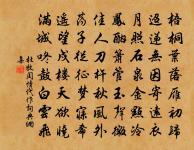 梧桐葉落雁初歸
迢遞無因寄遠衣
月照石泉金點冷
鳳酣簫管玉聲微
佳人刀杵秋風外
蕩子從征夢寐希
遙望戍樓天欲曉
滿城咚鼓白雲飛
杜牧閨情代作詞典網
集